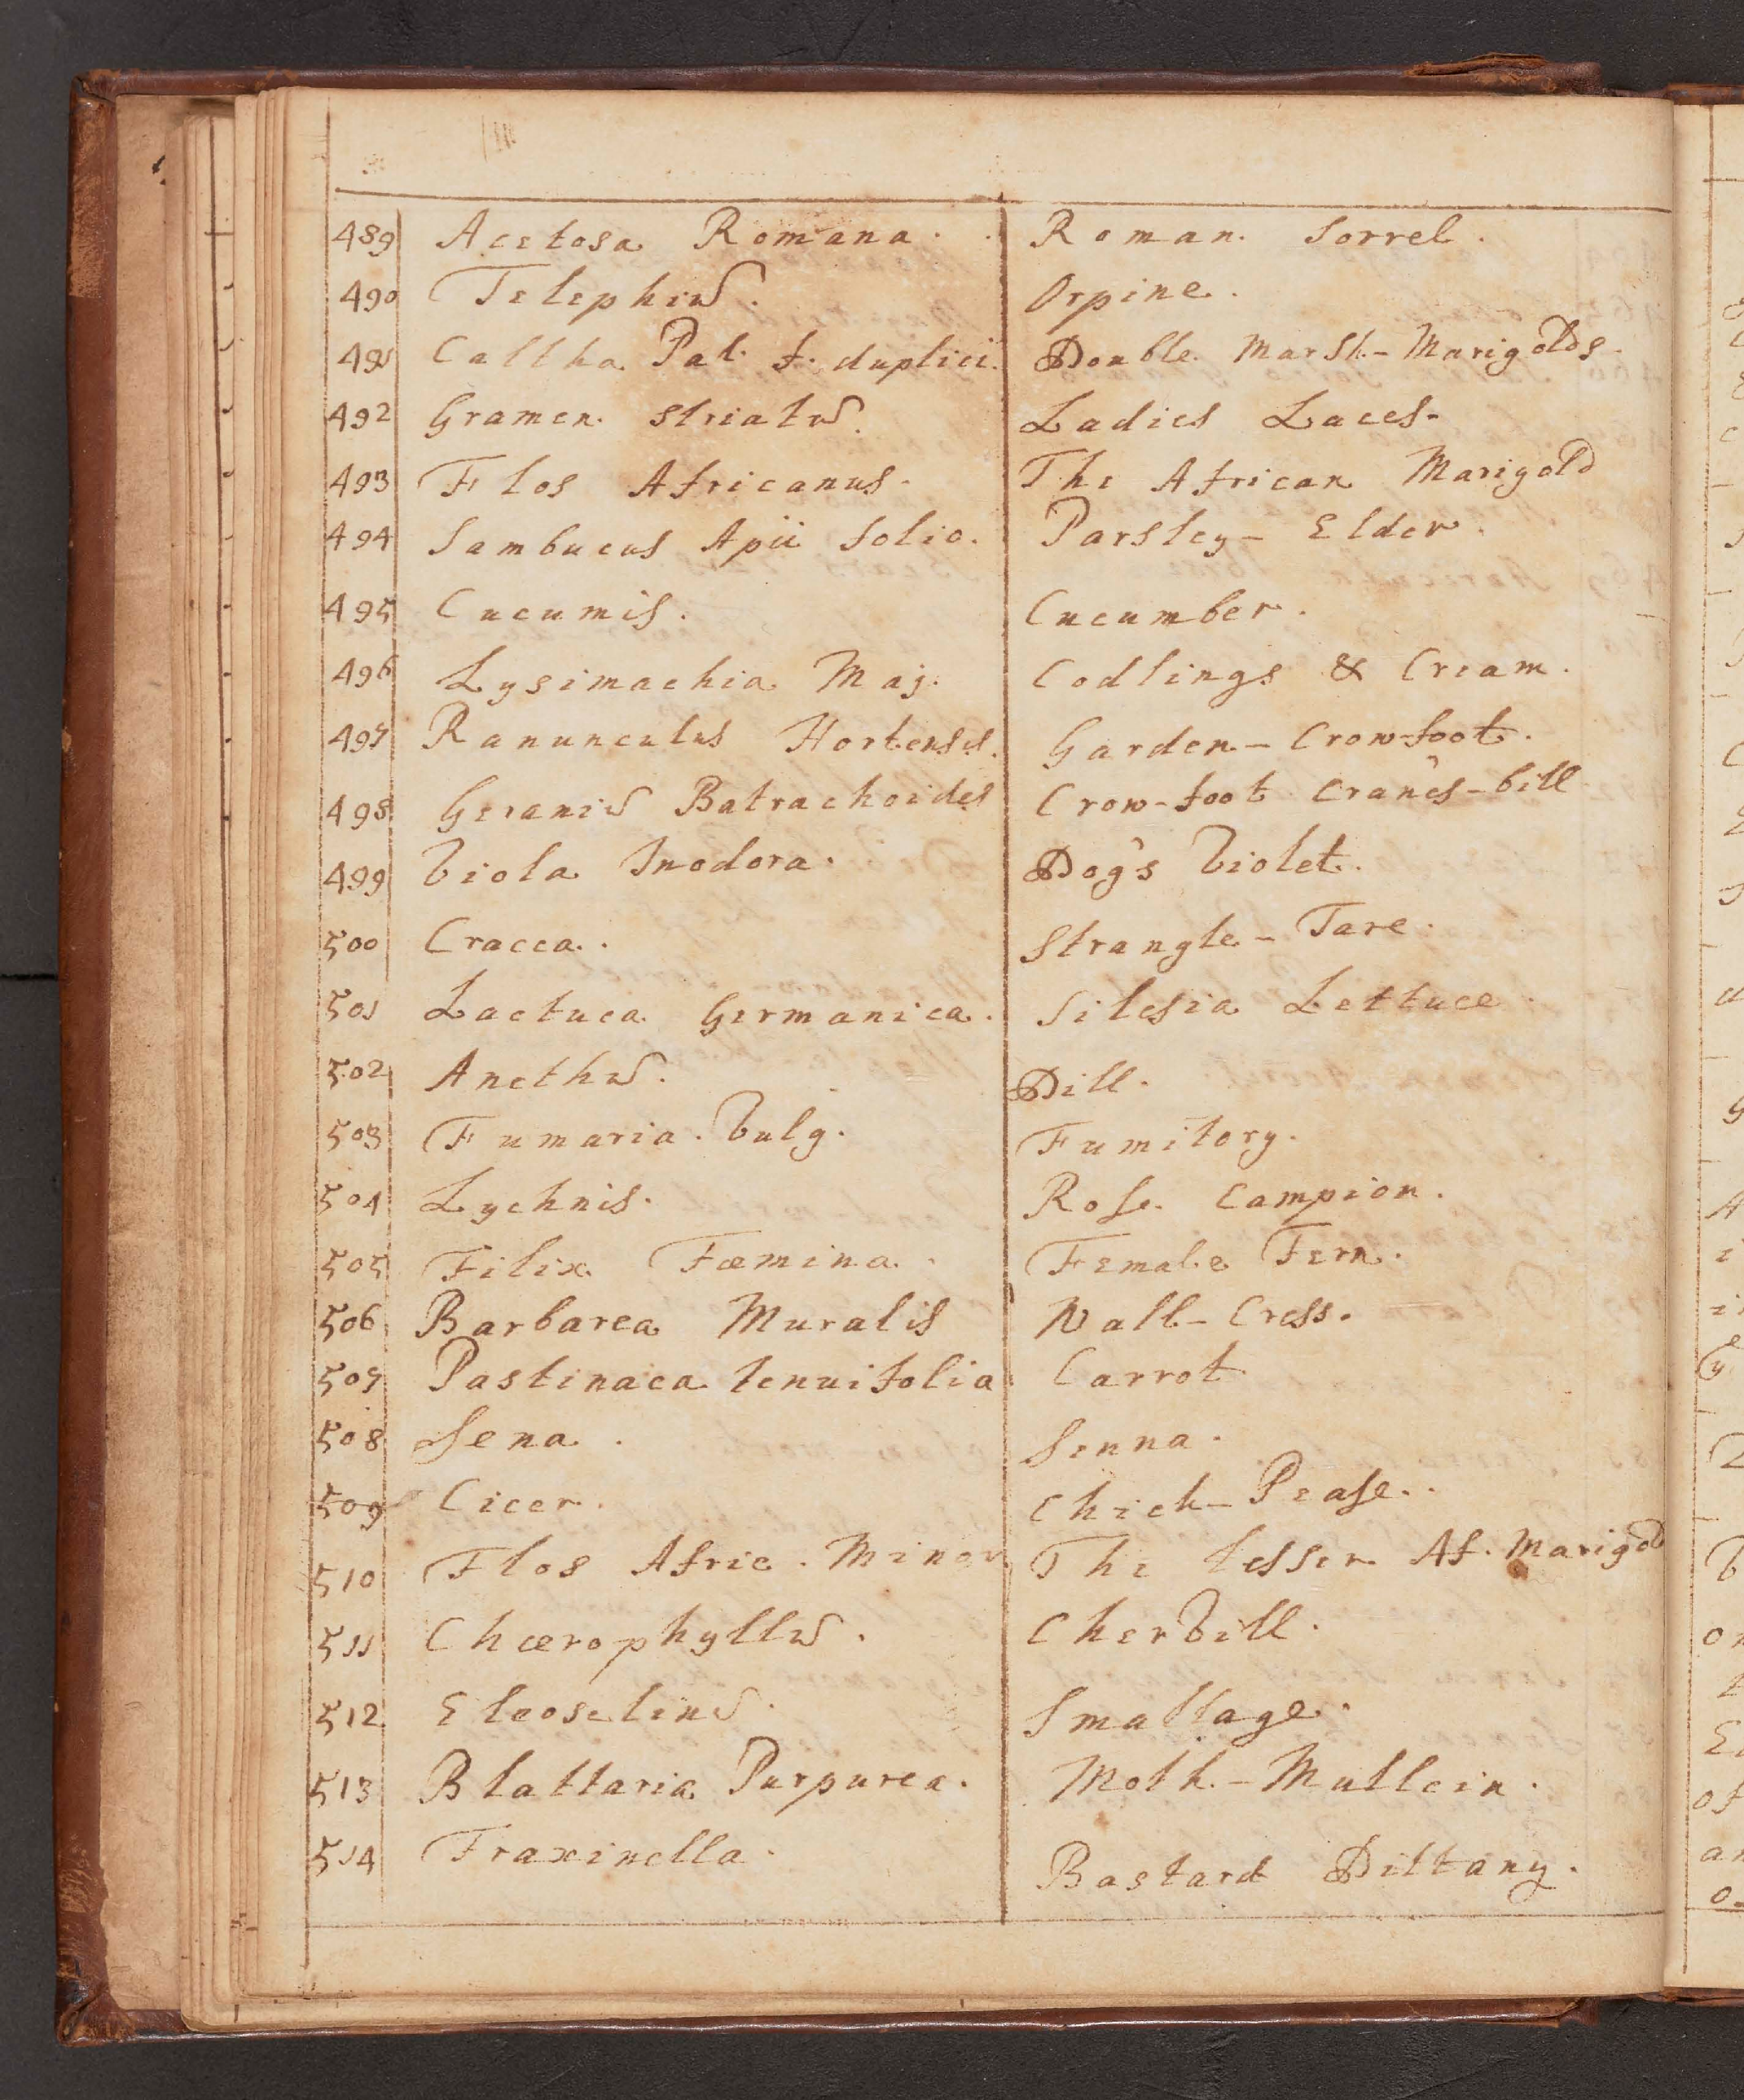 489 Acetosa Romana. Roman. Sorrel.
490 Telephiũ. Orpine.
491 Caltha Pal. f. duplici. Double Marsh-Marigolds.
492 Gramen. striatũ. Ladies Laces-
493 Flos Africanus. The African Marigold
494 Sambucus Apii folio. Parsley-Elder.
495 Cucumis. Cucumber.
496 Lysimachia Maj. Codlings & Cream.
497 Ranunculus Hortensis. Garden-Crow-foot.
498 Geraniũ Batrachoides Crow-foot Crane's-bill
499 Viola Inodora. Dog's Violet.
500 Cracca. Strangle-Tare.
501 Lactuca Germanica. Silesia Lettuce.
502 Anethũ. Dill.
503 Fumaria. Vulg. Fumitory.
504 Lychnis. Rose Campion.
505 Filix Fœmina. Female Fern.
506 Barbarea Muralis Wall-Cress.
507 Pastinaca tenuifolia Carrot
508 Sena. Senna.
509 Cicer. Chich-Pease.
510 Flos Afric. Minor The lesser Af. Marigold
511 Chœrophyllũ. Chervill.
512 Eleoselinũ. Smallage.
513 Blattaria Purpurea. Moth-Mullein.
514 Fraxinella. Bastard Dittany.